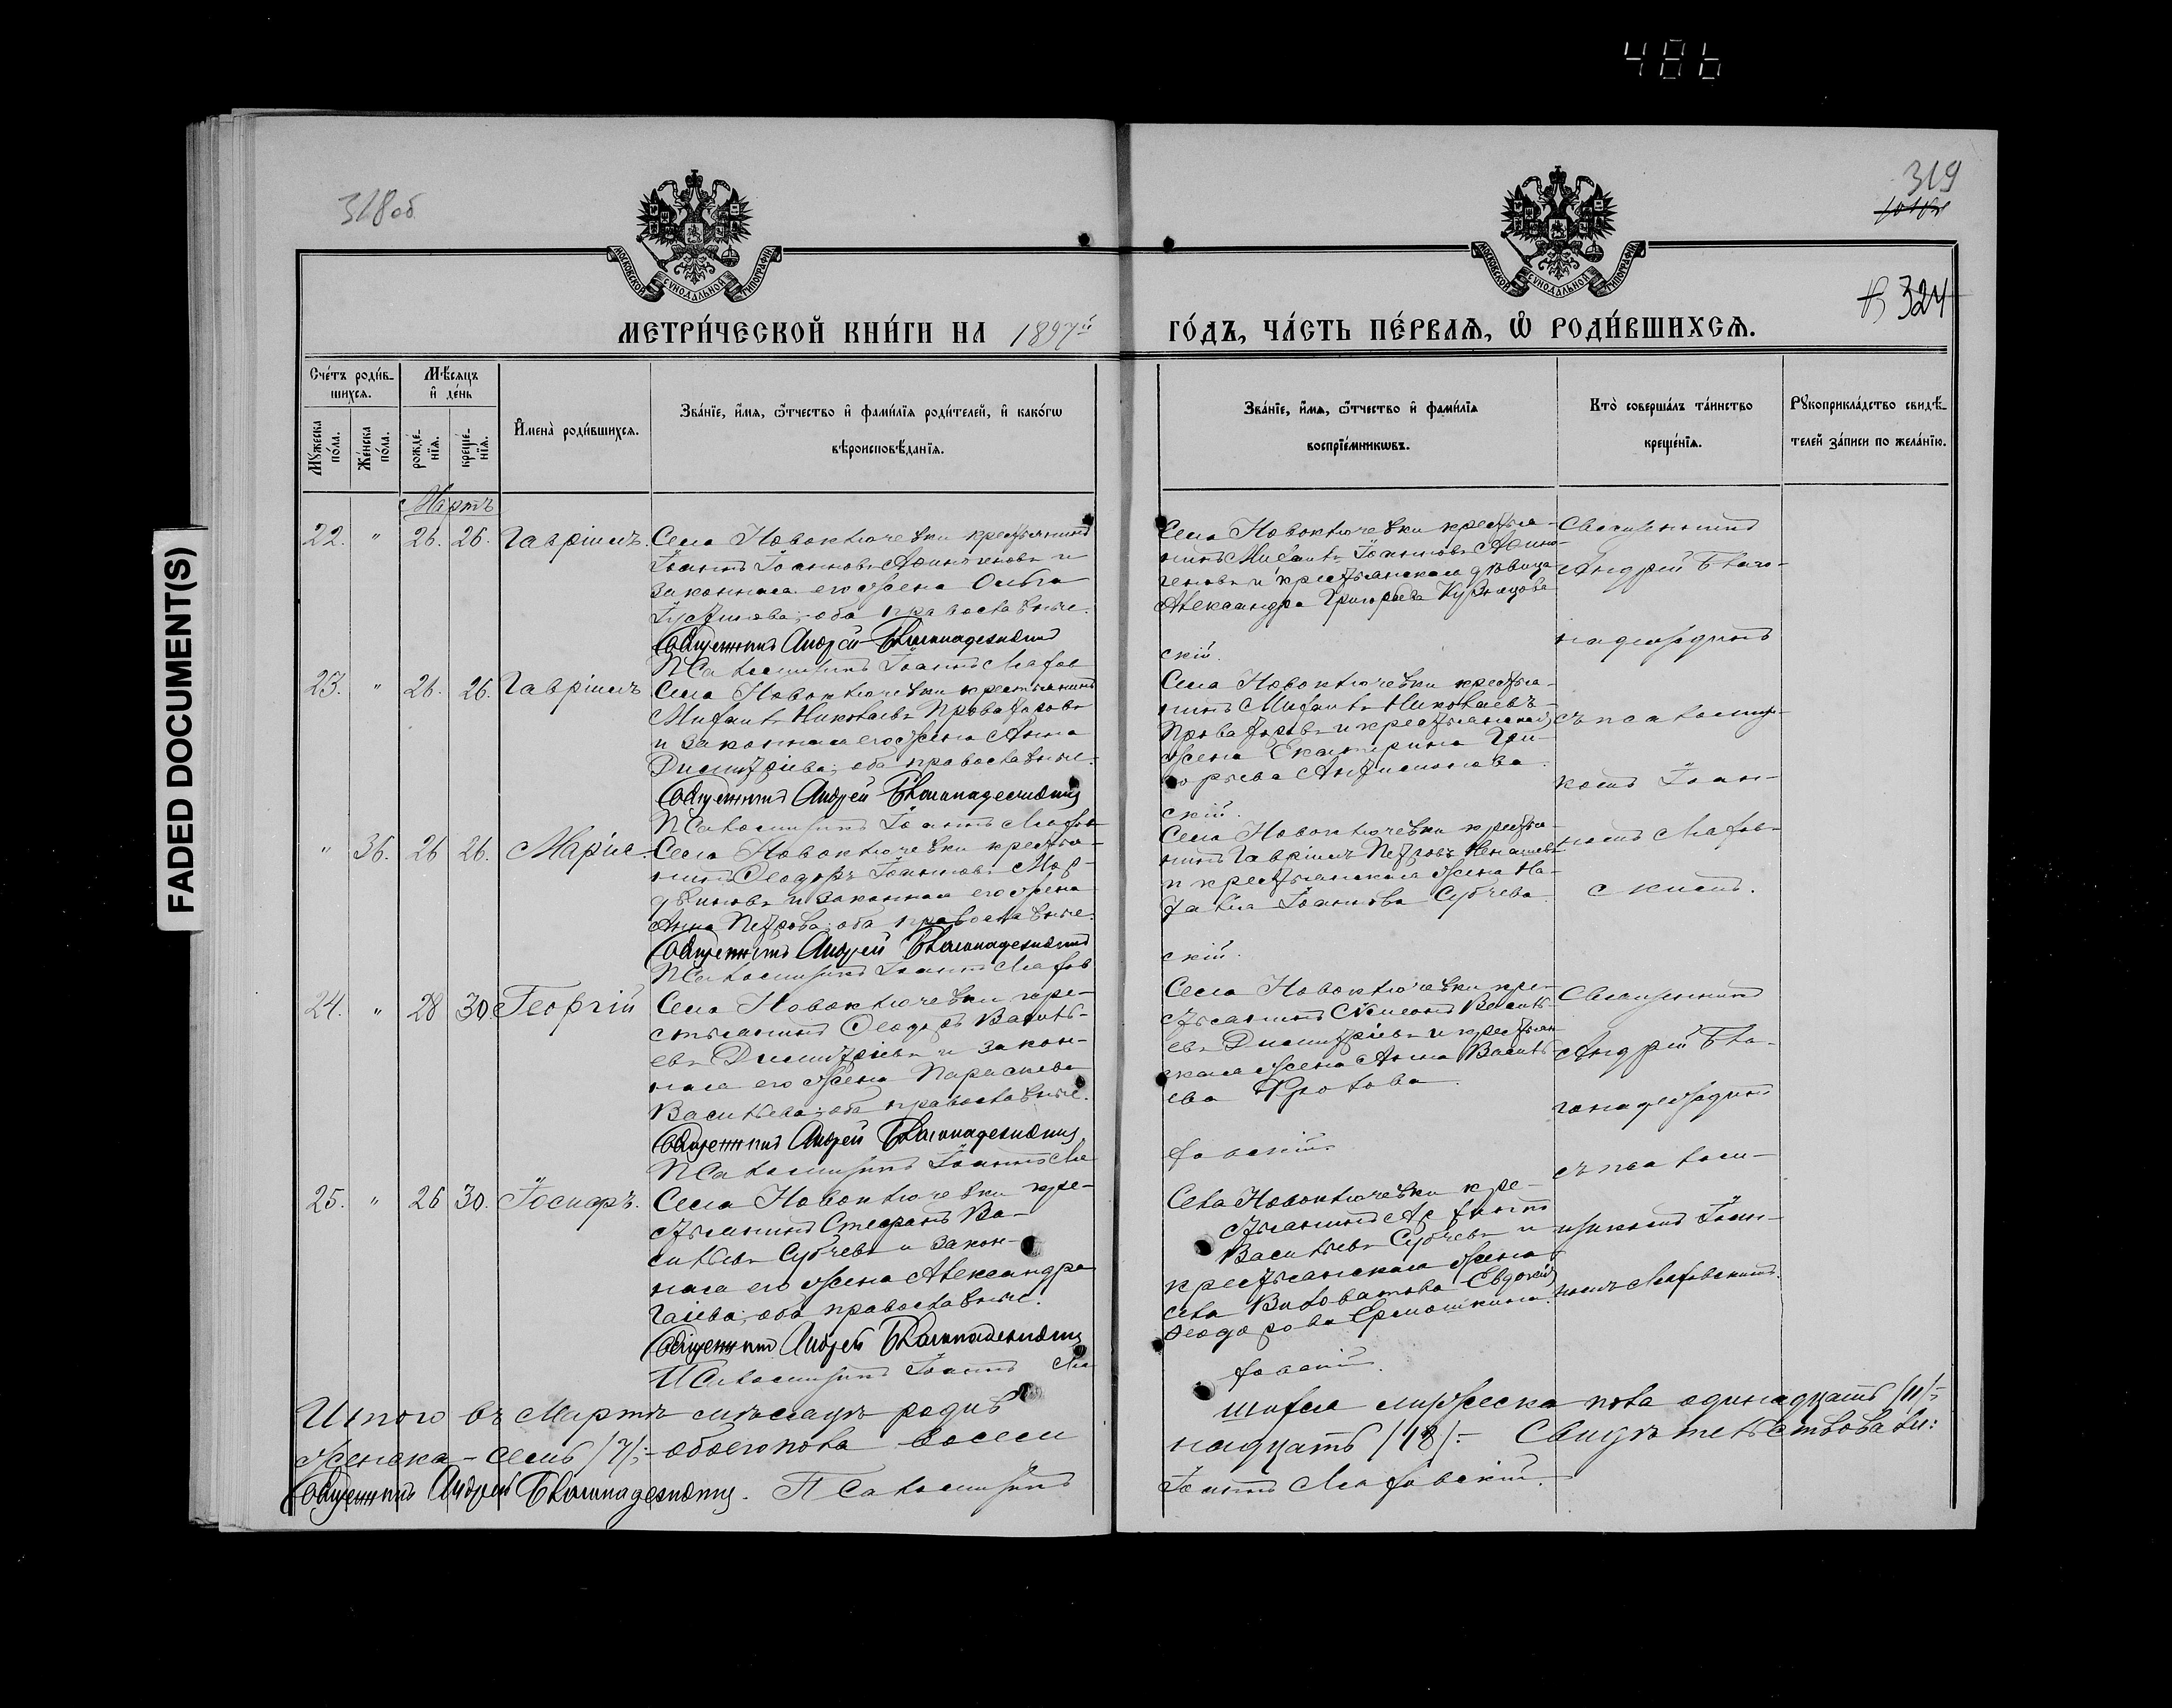 486
FADED DOCUMENT(S)
318 об
319
324
МОСКОВСКОЙ СѴНОДАЛЬНОЙ ТИПОГРАФІИ
МОСКОВСКОЙ СѴНОДАЛЬНОЙ ТИПОГРАФІИ
МЕТРИ́ЧЕСКОЙ КНИ́ГИ НА 1897й ГО́ДЪ, ЧА́СТЬ ПЕ́РВАѦ, Ѿ РОДИ́ВШИХСѦ.
Сче́тъ роди́в-
шихсѧ.
Мꙋ́жеска по́ла.
Же́нска по́ла.
Мѣ́сѧцъ
и҆ де́нь
рожде́-
нїѧ.
креще́-
нїѧ.
И҆мена̀ роди́вшихсѧ.
Зва́нїе, и҆́мѧ, ѻ҆́тчество и҆ фами́лїѧ роди́телей, и҆ како́гѡ
вѣроисповѣ́данїѧ.
Зва́нїе, и҆́мѧ, ѻ҆́тчество и҆ фами́лїѧ
воспрїе́мникѡвъ.
Кто̀ соверша́лъ та́инство
креще́нїѧ.
Рꙋкоприкла́дство свидѣ́-
телей за́писи по жела́нїю.
Мартъ
22. " 26. 26. Гавріилъ.
Села Новоключевки крестьянинъ
Іоаннъ Іоанновъ Афиногеновъ и
законная его жена Ольга
Іустинова; оба православные.
Священникъ Андрей Благонадеждинъ
Псаломщикъ Іоаннъ Малов
Села Новоключевки крестья-
нинъ Михаилъ Іоанновъ Афино-
геновъ и крестьянская дѣвица
Александра Григорьева Кузнецова
скій.
Священникъ
Андрей Благо-
надеждинъ
23. " 26. 26. Гавріилъ
Села Новоключевки крестьянинъ
Михаилъ Николаевъ Прова
и законная его жена Анна
Димитріева; оба православные.
Священникъ Андрей Благонадеждинъ
Псаломщикъ Іоаннъ Малов
Села Новоключевки крестья-
нинъ Михаилъ Николаевъ
и крестьянская
жена Екатерина Гри-
горьева Анфиногенова.
скій.
съ псаломщи-
комъ Іоан-
номъ Малов-
скимъ.
" 36. 26 26. Марія.
Села Новоключевки крестья-
нинъ Ѳеодоръ Іоанновъ Мор-
двиновъ и законная его жена
Анна Петрова; оба православные.
Священникъ Андрей Благонадеждинъ
Псаломщикъ Іоаннъ Малов
Села Новоключевки крестья-
нинъ Гавріилъ Петровъ
и крестьянская жена На-
талія Іоаннова Субчева.
скій.
24. " 28 30. Георгій
Села Новоключевки кре-
стьянинъ Ѳеодоръ Василь-
евъ Димитріевъ и закон-
ная его жена Параскева
Васильева; оба православные.
Священникъ Андрей Благонадеждинъ
Псаломщикъ Іоаннъ Ма
Села Новоключевки кре-
стьянинъ Симеонъ Василь-
евъ Димитріевъ и крестьян-
ская жена Анна Василь-
ева Кротова.
ловскій.
Священникъ
Андрей Бла-
гонадеждинъ
съ псалом-
щикомъ Іоан-
номъ Маловскимъ.
25. " 26 30. Іосифъ.
Села Новоключевки кре-
стьянинъ Стефанъ Ва-
сильевъ Субчевъ и закон-
ная его жена Александра
Гаіева; оба православные.
Священникъ Андрей Благонадеждинъ
Псаломщикъ Іоаннъ Ма
Села Новоключевки кре-
стьянинъ
Васильевъ Субчевъ и
крестьянская жена
села Виловатова Евдокія
Ѳеодорова Ермошкина.
ловскій.
Итого въ Мартѣ мѣсяцѣ родив шихся мужеска пола одинадцать /11/;
женска - семь /7/; - обоего пола восем надцать /18/. - Свидѣтельствовали:
Священникъ Андрей Благонадеждинъ. Псаломщикъ Іоаннъ Маловскій.